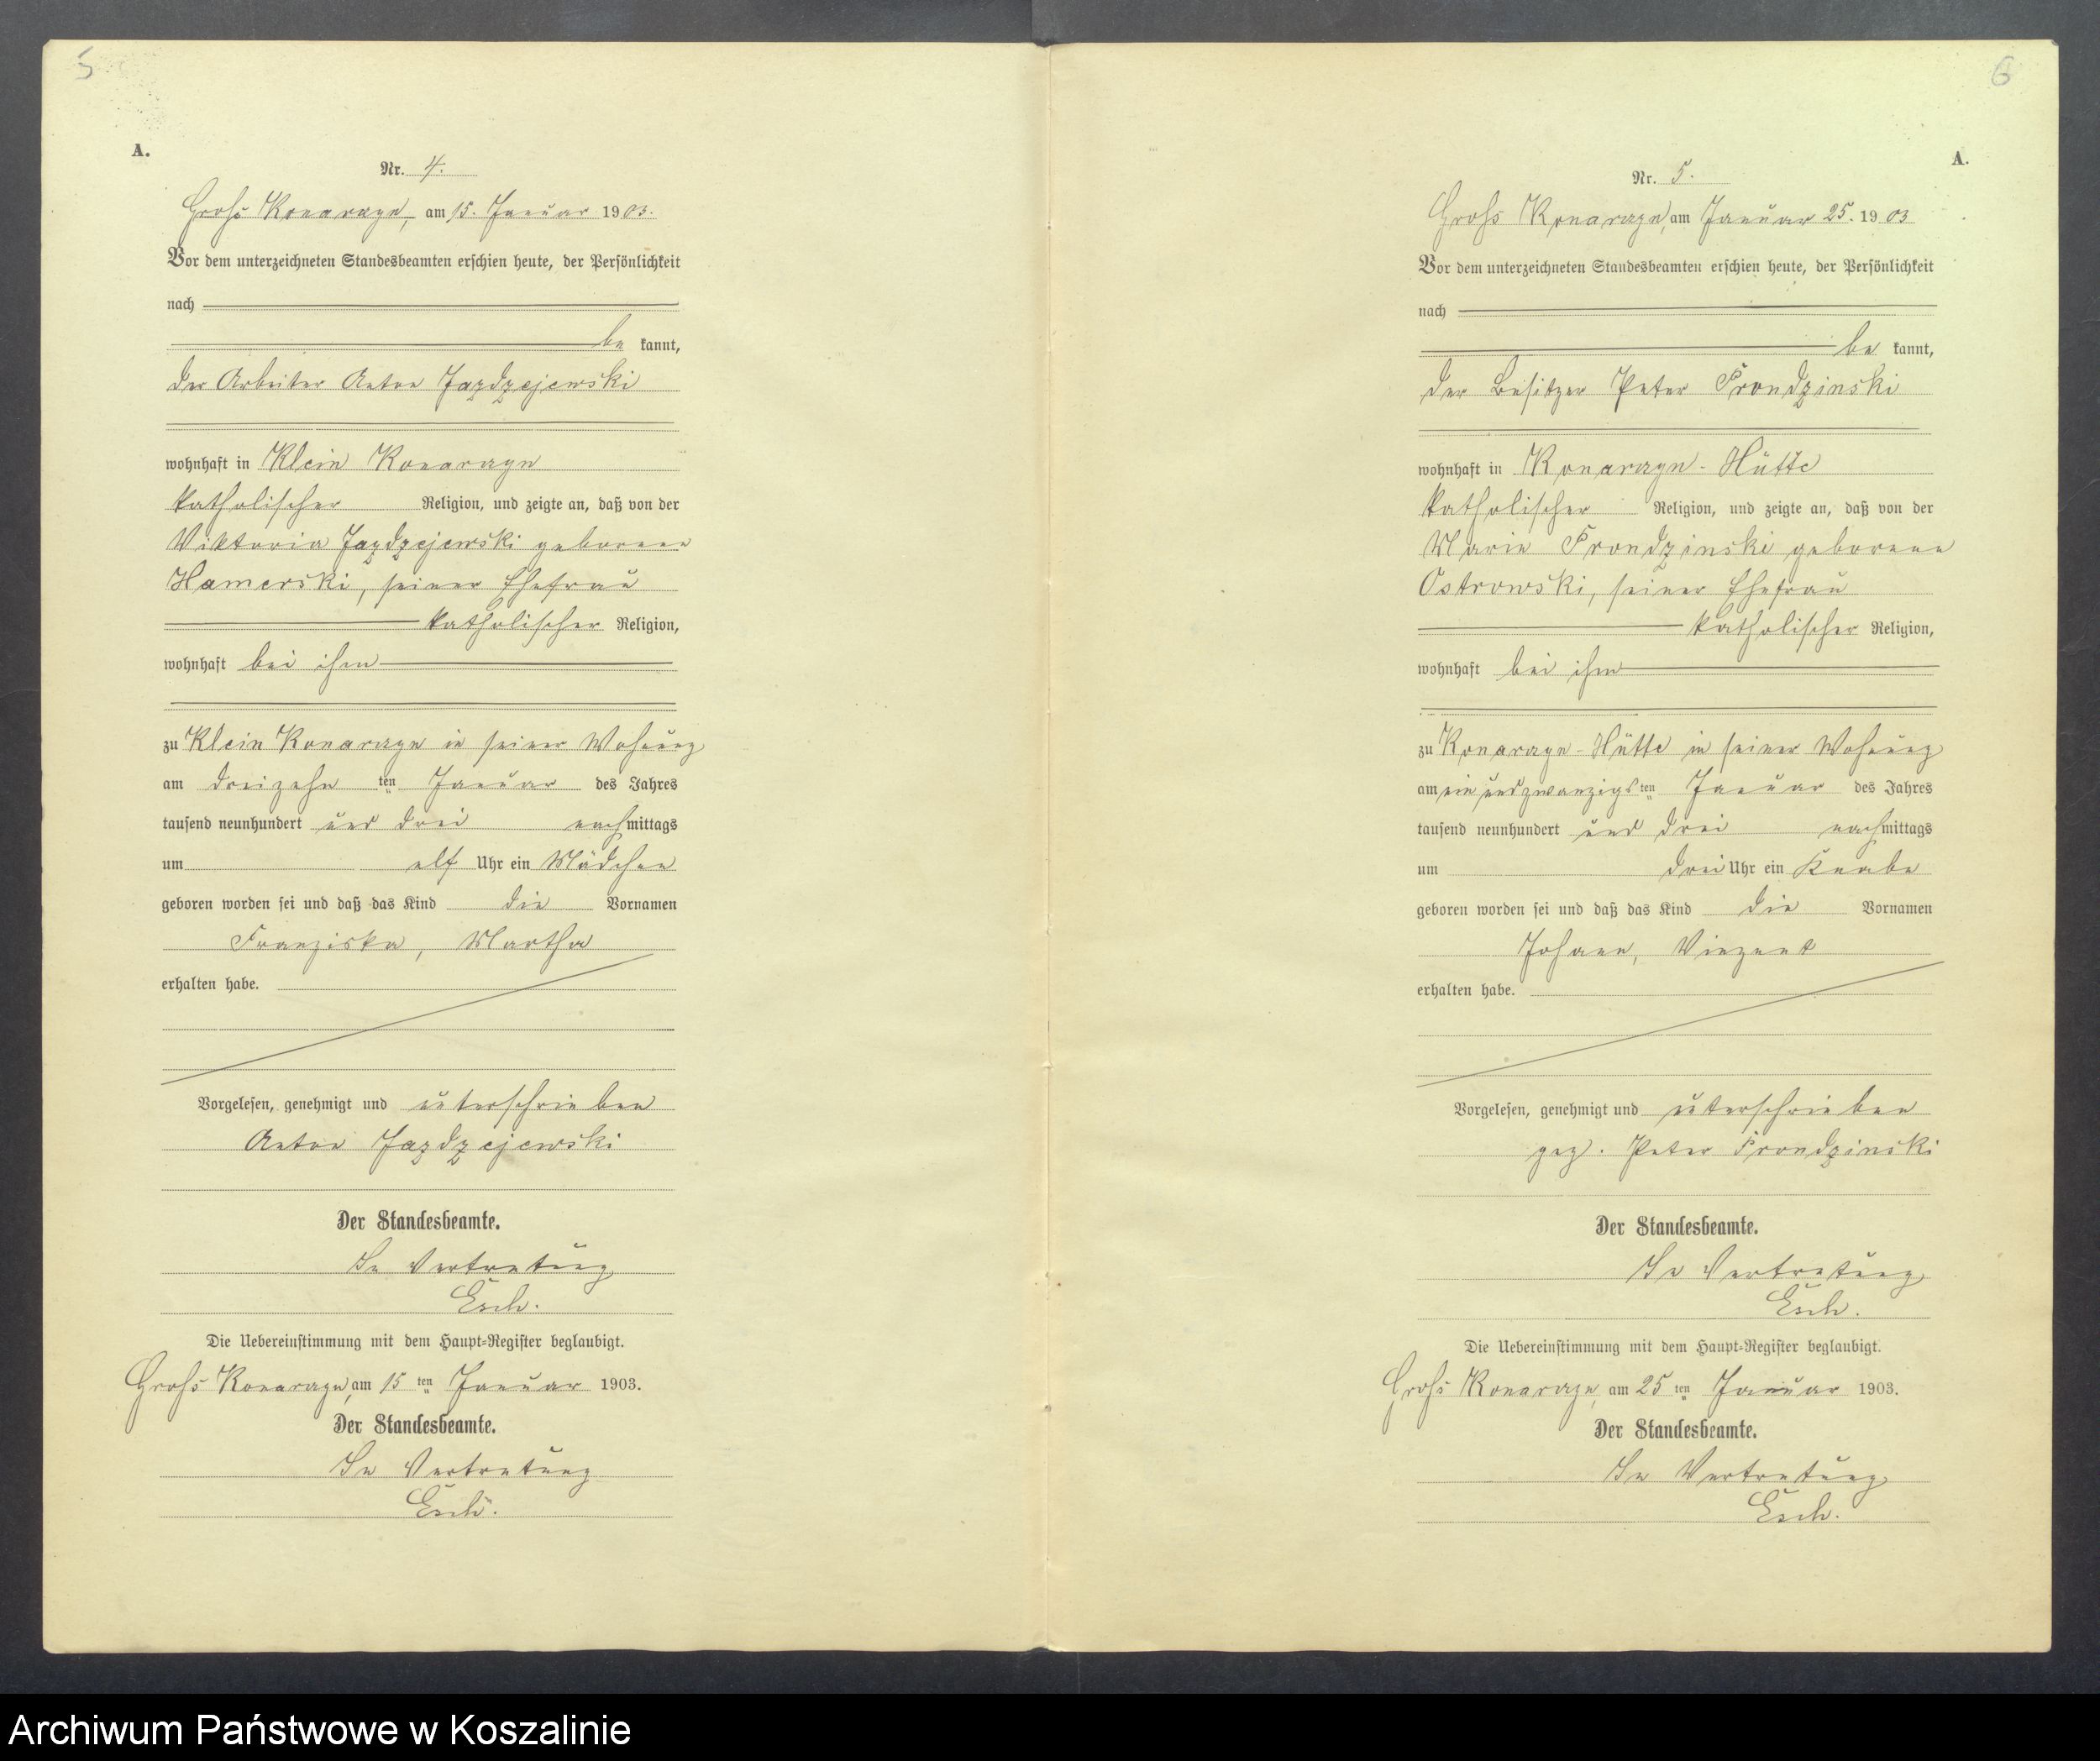 5
A.
Nr. 4.
Groß Konarzyn, am 15. Januar 1903.
Vor dem unterzeichneten Standesbeamten erschien heute, der Persönlichkeit
nach
be kannt,
der Arbeiter Anton Jazdzejewski
wohnhaft in Klein Konarzyn
katholischer Religion, und zeigte an, daß von der
Viktoria Jazdzejewski geborene
Hamerski, seiner Ehefrau
katholischer Religion,
wohnhaft bei ihm
zu Klein Konarzyn in seiner Wohnung
am dreizehn ten Januar des Jahres
tausend neunhundert und drei nachmittags
um elf Uhr ein Mädchen
geboren worden sei und daß das Kind die Vornamen
Franziska, Martha
erhalten habe.
Vorgelesen, genehmigt und unterschrieben
Anton Jazdzejewski
Der Standesbeamte.
In Vertretung
Esch.
Die Uebereinstimmung mit dem Haupt-Register beglaubigt.
Groß Konarzyn, am 15 ten Januar 1903.
Der Standesbeamte.
In Vertretung
Esch.
6
A.
Nr. 5.
Groß Konarzyn, am Januar 25. 1903
Vor dem unterzeichneten Standesbeamten erschien heute, der Persönlichkeit
nach
be kannt,
der Besitzer Peter Prondzinski
wohnhaft in Konarzyn-Hütte
katholischer Religion, und zeigte an, daß von der
Marie Prondzinski geborene
Ostrowski, seiner Ehefrau
katholischer Religion,
wohnhaft bei ihm
zu Konarzyn-Hütte in seiner Wohnung
am ein und zwanzigsten Januar des Jahres
tausend neunhundert und drei nachmittags
um drei Uhr ein Knabe
geboren worden sei und daß das Kind die Vornamen
Johann, Vinzent
erhalten habe.
Vorgelesen, genehmigt und unterschrieben
gez. Peter Prondzinski
Der Standesbeamte.
In Vertretung
Esch.
Die Uebereinstimmung mit dem Haupt-Register beglaubigt.
Groß Konarzyn, am 25 ten Januar 1903.
Der Standesbeamte.
In Vertretung
Esch.
Archiwum Państwowe w Koszalinie